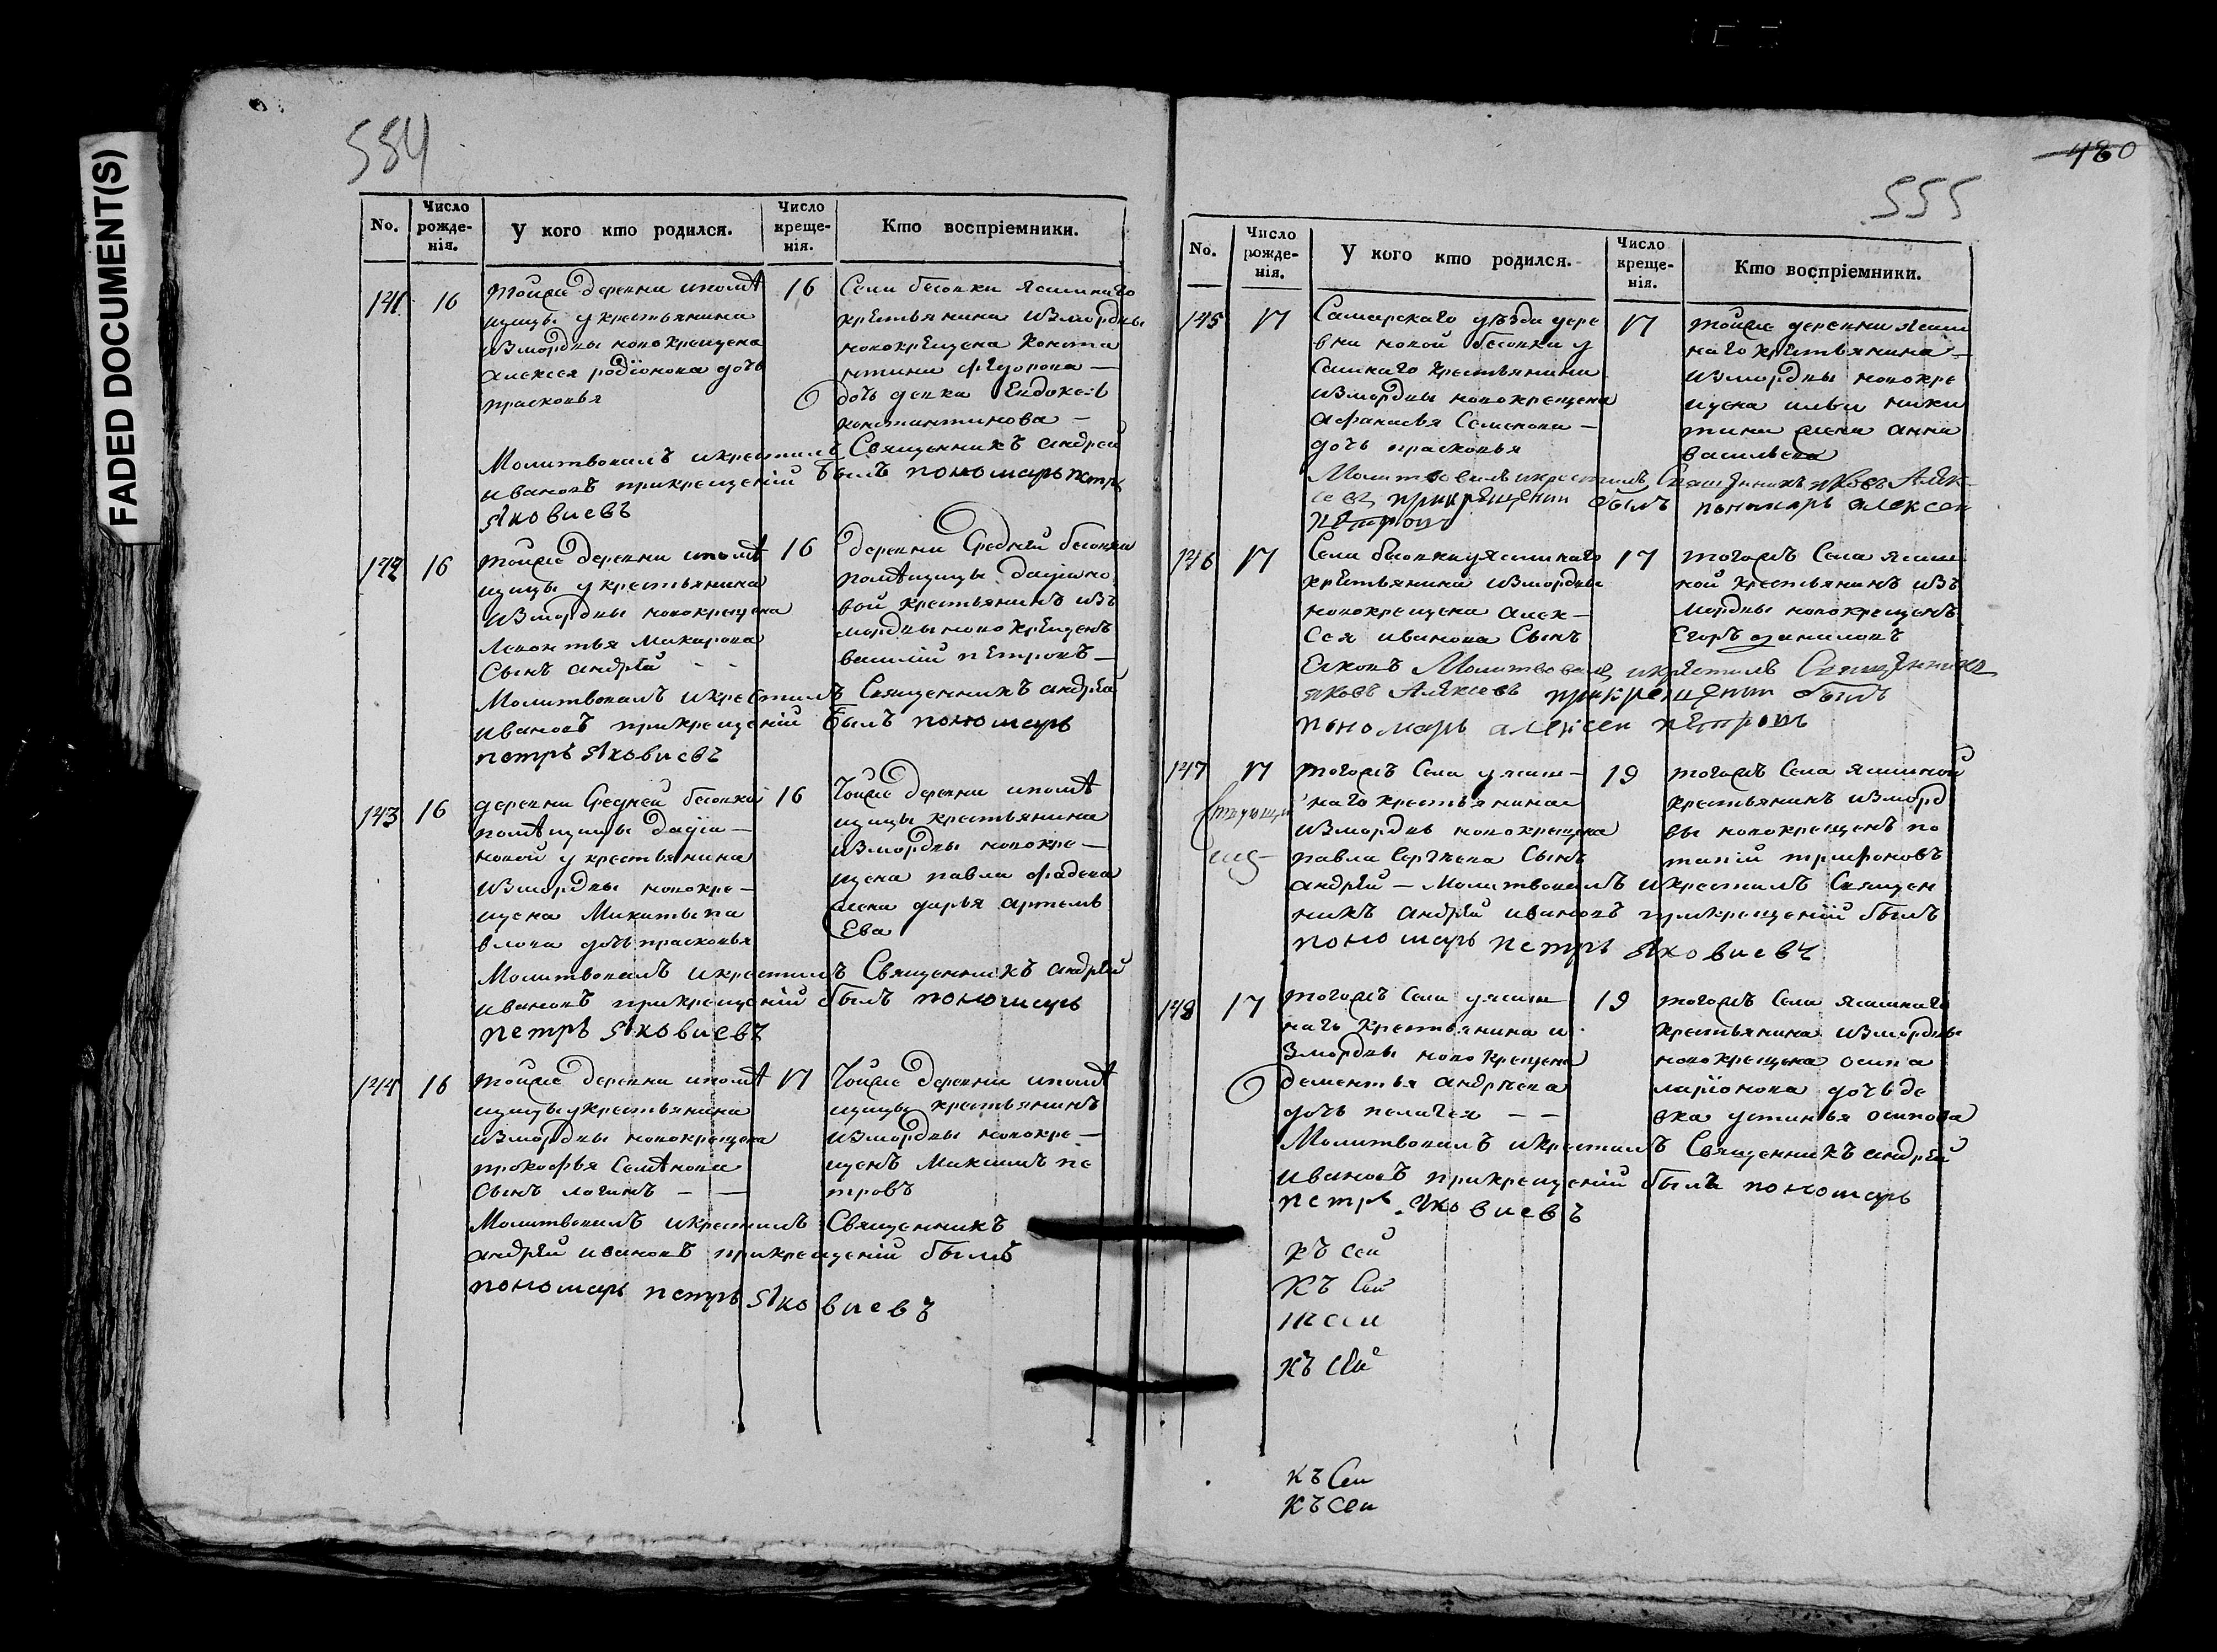 FADED DOCUMENT(S)
554
No.
Число рожденія.
У кого кто родился.
Число крещенія.
Кто воспріемники.
141 16
тойже деревни ипомѣ
щицы укрестьянина
измордвы новокрещена
алексея родіонова дочь
прасковья
16
Села бесовки ясашнаго
крестьянина измордвы
новокрещена конста
нтина федорова —
дочь девка Евдокея
константинова —
Молитвовалъ икрестилъ Священникъ андрей
ивановъ прикрещеніи былъ пономарь петръ
яковлевъ
142 16
тойже деревни ипомѣ
щицы укрестьянина
измордвы новокрещена
Левонтья Макарова
Сынъ андрей - -
16
деревни Средней бесовки
помѣщицы
вой крестьянинъ изъ
мордвы новокрещенъ
василій петровъ —
Молитвовалъ икрестилъ Священникъ андрей
ивановъ прикрещеніи былъ пономарь
петръ яковлевъ
143 16
деревни Средней бесовки
помѣщицы
новой укрестьянина
измордвы новокре—
щена Микиты па
влова дочь прасковья
16
тойже деревни ипомѣ
щицы крестьянина
измордвы новокре—
щена павла фадеева
жена дарья артемь
Ева
Молитвовалъ икрестилъ Священникъ андрей
ивановъ прикрещеніи былъ пономарь
петръ яковлевъ
144 16
тойже деревни ипомѣ
щицы укрестьянина
измордвы новокрещена
прокофья Семѣнова
Сынъ логинъ - —
17
тойже деревни ипомѣ
щицы крестьянинъ
измордвы новокре—
щенъ Максимъ пе
тровъ
Молитвовалъ икрестилъ Священникъ
андрей ивановъ прикрещеніи былъ
пономарь петръ яковлевъ
480
555
No.
Число рожденія.
У кого кто родился.
Число крещенія.
Кто воспріемники.
145 17
Самарскаго уѣзда дере
вни новой бесовки у
Сашнаго крестьянина
измордвы новокрещена
афанасья Семенова —
дочь прасковья
17
тойже деревни ясаш
наго крестьянина —
измордвы новокре
щена ильи ники
тина жена анна
васильева
Молитвовалъ икрестилъ Священникъ яковъ Алек
сеевъ прикрещении былъ понамарь алексеи
петровъ
146 17
Села бесовки уясашнаго
крестьянина измордвы
новокрещена алек—
Сея иванова Сынъ
17
тогожъ Села ясаш
ной крестьянинъ изъ
мордвы новокрещенъ
Егоръ даниловъ
Молитвовалъ икрестилъ Священникъ
яковъ Алексеевъ прикрещении былъ
пономарь алексеи петровъ
147 17
тогожъ Села уясаш—
наго крестьянина
измордвы новокрещена
павла Сергѣева Сынъ
19
тогожъ Села ясашной
крестьянинъ изморд
вы новокрещенъ по
тапій трифоновъ
андрей — Молитвовалъ икрестилъ Священ
никъ андрей ивановъ прикрещеніи былъ
пономарь петръ яковлевъ
148 17
тогожъ Села уясаш—
наго крестьянина и
змордвы новокрещена
дементья андрѣева
дочь пелагея — —
19
тогожъ Села ясашнаго
крестьянина измордвы
новокрещена осипа
ларіонова дочь де
вка устинья осипова
Молитвовалъ икрестилъ Священникъ андрей
ивановъ прикрещеніи былъ пономарь
петръ яковлевъ
Къ сей
Къ Сей
Къ сей
Къ Сеи
Къ сеи